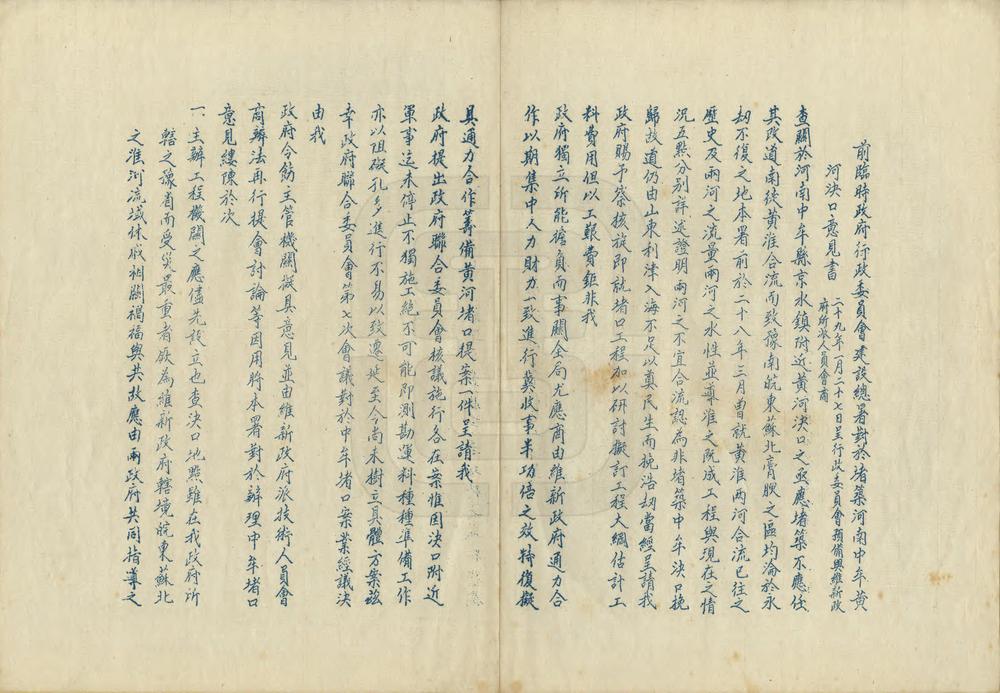 前臨時政府行政委員會建設總署對於堵築河南中牟黃
河決口意見書
二十九年一月二十七日呈行政委員會預備與維新政
府所派人員會商
查關於河南中牟縣京水鎮附近黃河決口之亟應堵築不應任
其改道南徙黃淮合流而致豫南皖東蘇北膏腴之區均淪於永
劫不復之地本署前於二十八年三月曾就黃淮兩河合流已往之
歷史及兩河之流量兩河之水性並導淮之既成工程與現在之情
況五點分別詳述證明兩河之不宜合流認為非堵築中牟決口挽
歸故道仍由山東利津入海不足以奠民生而挽浩劫當經呈請我
政府賜予察核旋即就堵口工程加以研討擬訂工程大綱估計工
料費用但以工艱費鉅非我
政府獨立所能擔負而事關全局尤應商由維新政府通力合
作以期集中人力財力一致進行冀收事半功倍之效特復擬
具通力合作籌備黃河堵口提案一件呈請我
政府提出政府聯合委員會核議施行各在案惟因決口附近
軍事迄未停止不獨施工絕不可能即測勘運料種種準備工作
亦以阻礙孔多進行不易以致遷延至今尚未樹立具體方案茲
幸政府聯合委員會第七次會議對於中牟堵口案業經議決
由我
政府令飭主管機關擬具意見並由維新政府派技術人員會
商辦法再行提會討論等因用將本署對於辦理中牟堵口
意見縷陳於次
一、主辦工程機關之應儘先設立也查決口地點雖在我政府所
轄之豫省而受災最重者厥為維新政府轄境皖東蘇北
之淮河流域休戚相關禍福與共故應由兩政府共同指導之